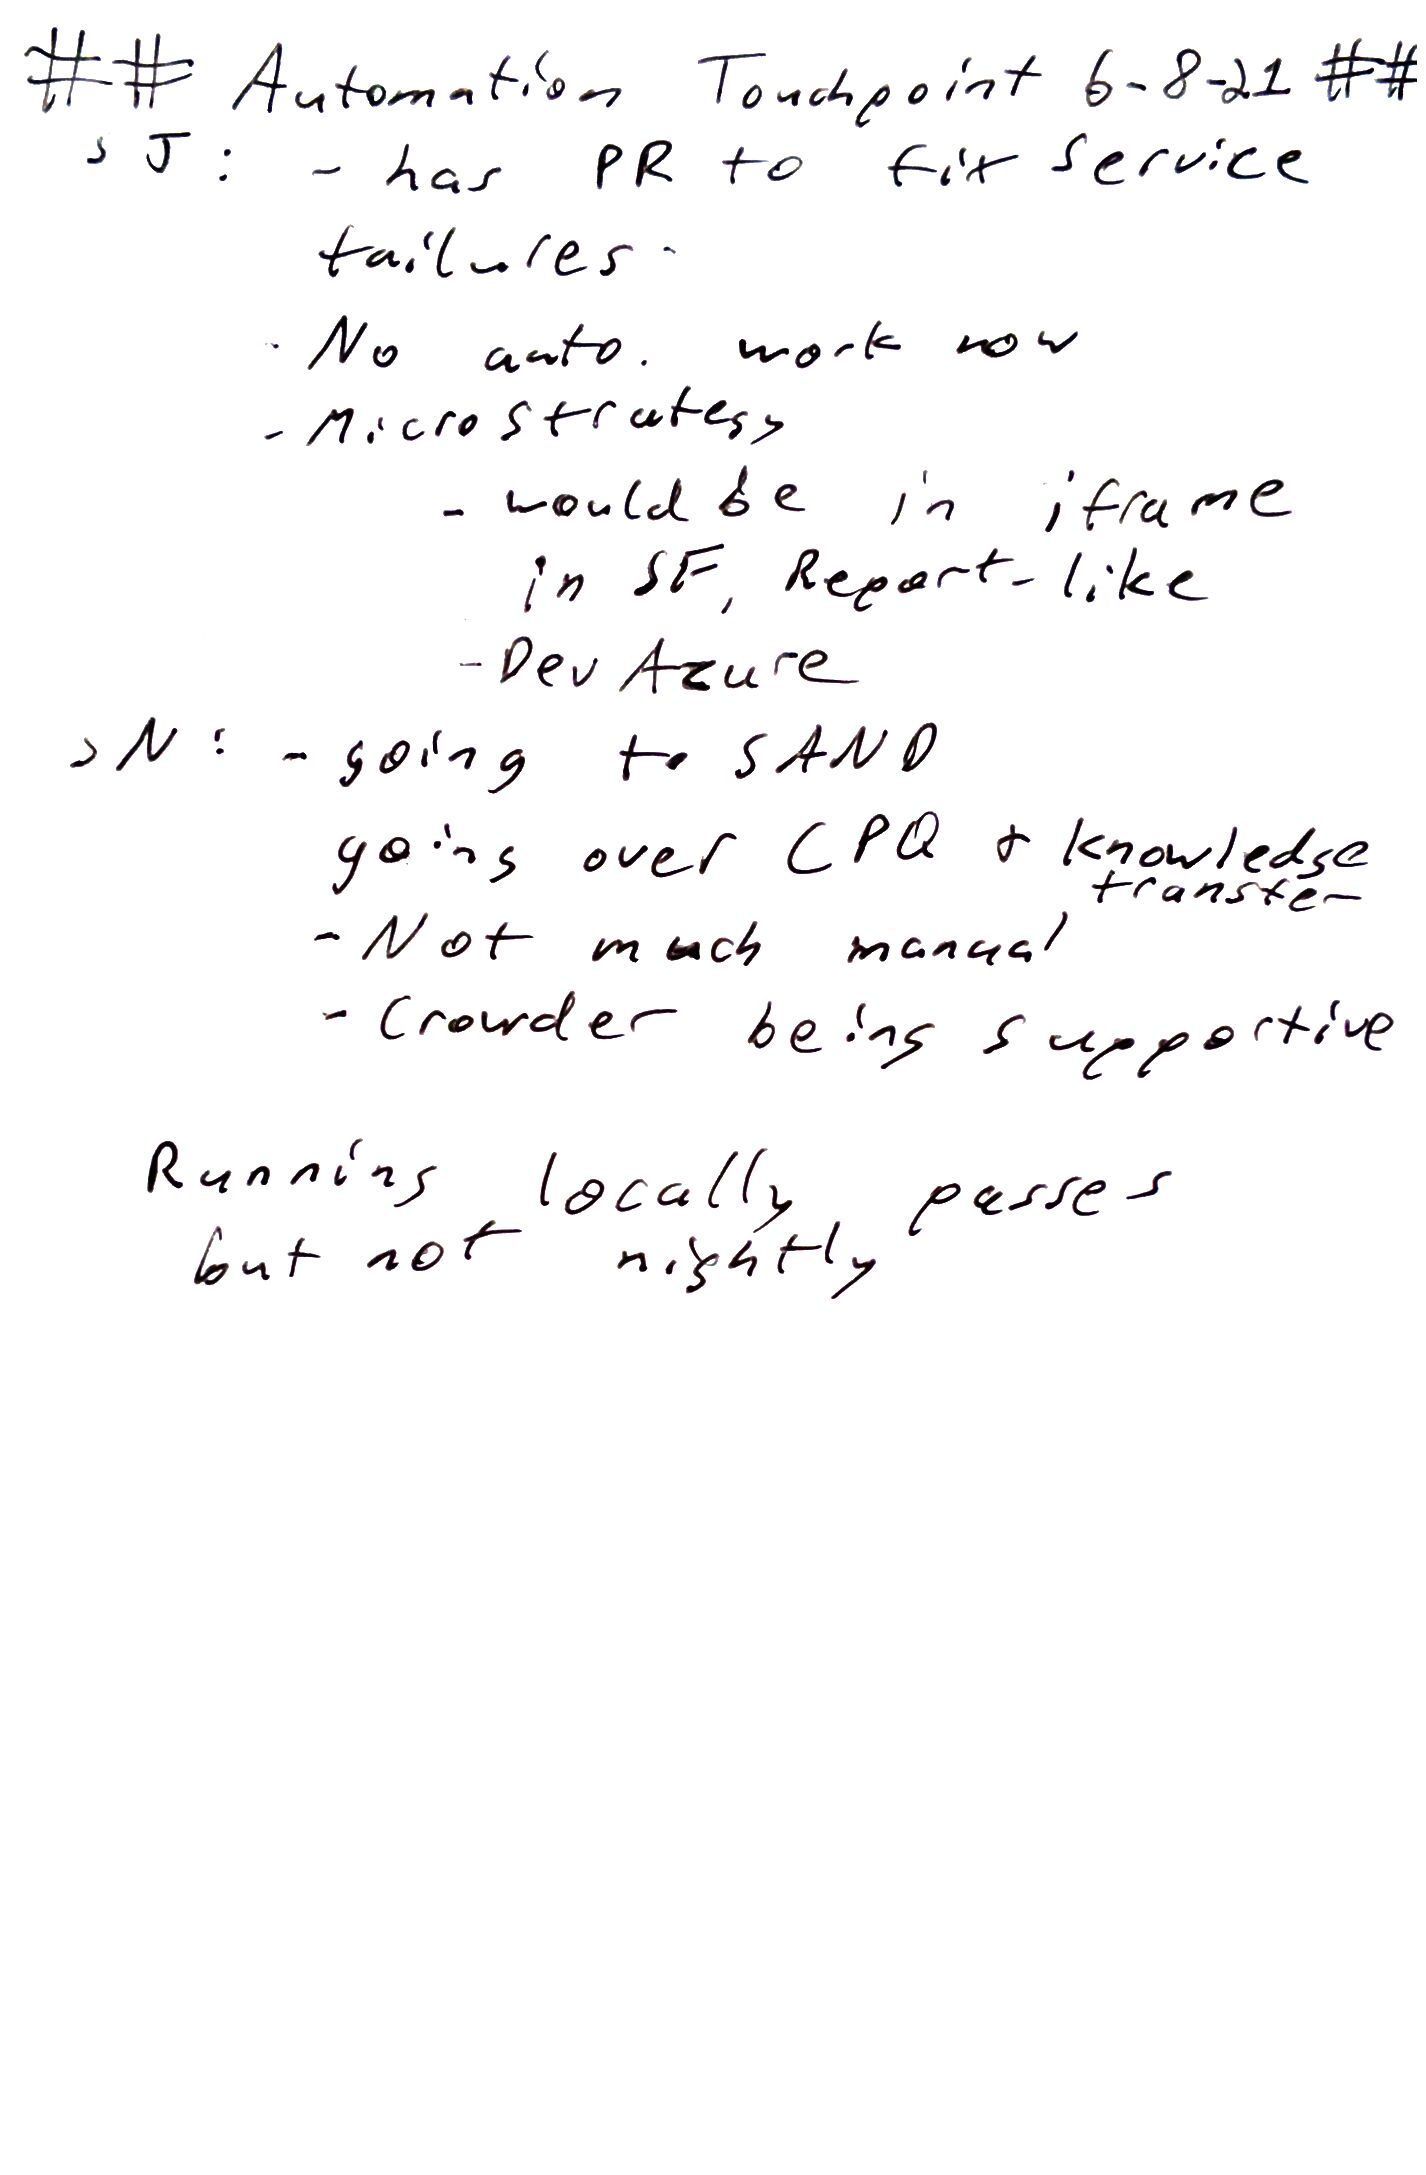 ## Automation Touchpoint 6-8-21 ##
> J : - has PR to fix service
failures.
- No auto. work now
- MicroStrategy
- would be in iframe
in SF, Report-like
- Dev Azure
> N : - going to SAND
going over CPQ & knowledge
transfer
- Not much manual
- Crowder being supportive
Running locally passes
but not nightly